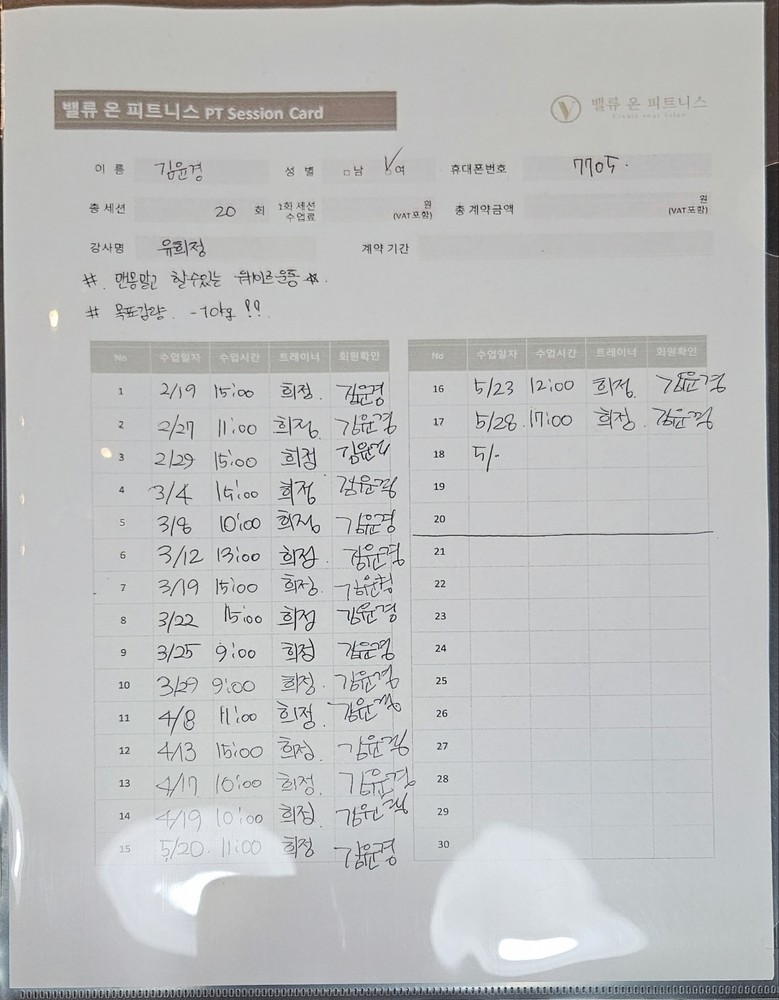 밸류 온 피트니스 PT Session Card
밸류 온 피트니스
이 름 김윤경 성 별 □남 □여 휴대폰번호 7705.
총 세션 20 회 1회 세션 수업료 원 (VAT포함) 총 계약금액 원 (VAT포함)
강사명 유희정 계약 기간
#. 맨몸말고 할수있는 웨이트운동 ☆.
# 목표감량. -10kg !!
No 수업일자 수업시간 트레이너 회원확인
1 2/19 15:00 희정. 김윤경
2 2/27 11:00 희정. 김윤경
3 2/29 15:00 희정 김윤경
4 3/4 15:00 희정 김윤경
5 3/8 10:00 희정 김윤경
6 3/12 13:00 희정. 김윤경
7 3/19 15:00 희정. 김윤경
8 3/22 15:00 희정 김윤경
9 3/25 9:00 희정 김윤경
10 3/29 9:00 희정. 김윤경
11 4/8 11:00 희정. 김윤경
12 4/13 15:00 희정. 김윤경
13 4/17 10:00 희정. 김윤경
14 4/19 10:00 희정. 김윤경
15 5/20. 11:00 희정 김윤경
No 수업일자 수업시간 트레이너 회원확인
16 5/23 12:00 희정. 김윤경
17 5/28. 17:00 희정. 김윤경
18 5/-
19
20
21
22
23
24
25
26
27
28
29
30